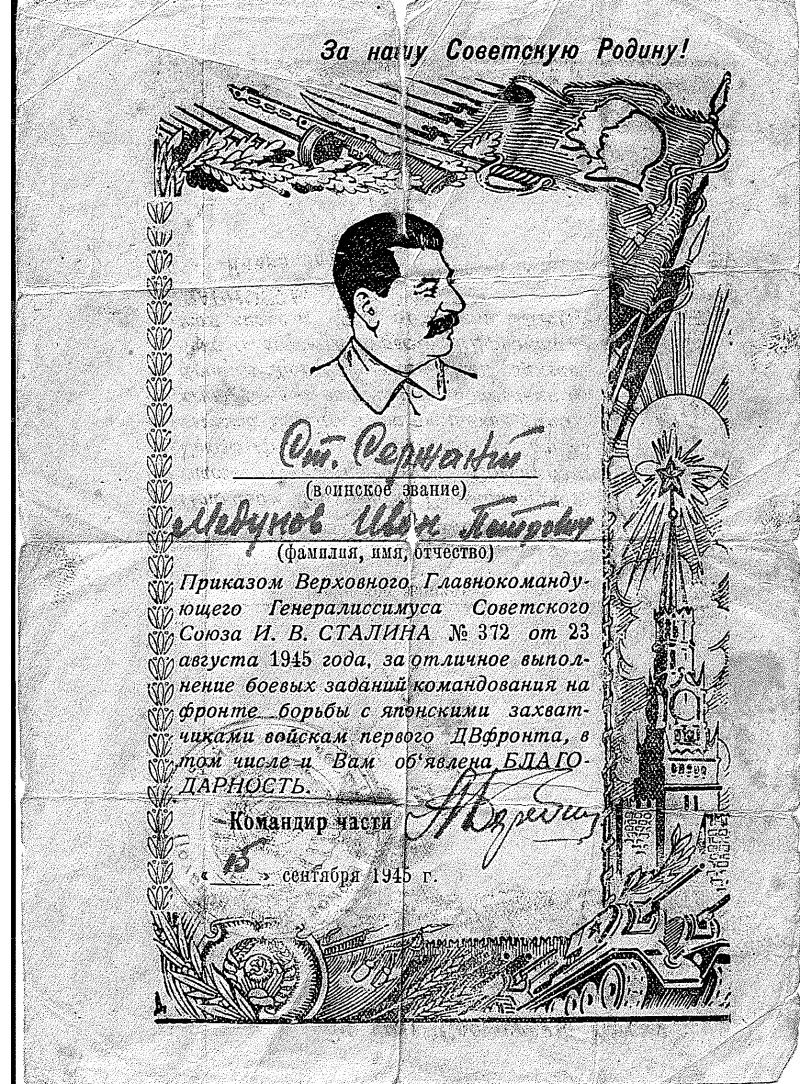 За нашу Советскую Родину!
Ст. Сержант
(воинское звание)
Медунов Иван Петрович
(фамилия, имя, отчество)
Приказом Верховного Главнокоманду-
ющего Генералиссимуса Советского
Союза И. В. СТАЛИНА № 372 от 23
августа 1945 года, за отличное выпол-
нение боевых заданий командования на
фронте борьбы с японскими захват-
чиками войскам первого ДВфронта, в
том числе и Вам об‘явлена БЛАГО-
ДАРНОСТЬ.
Командир части
« 15 » сентября 1945 г.